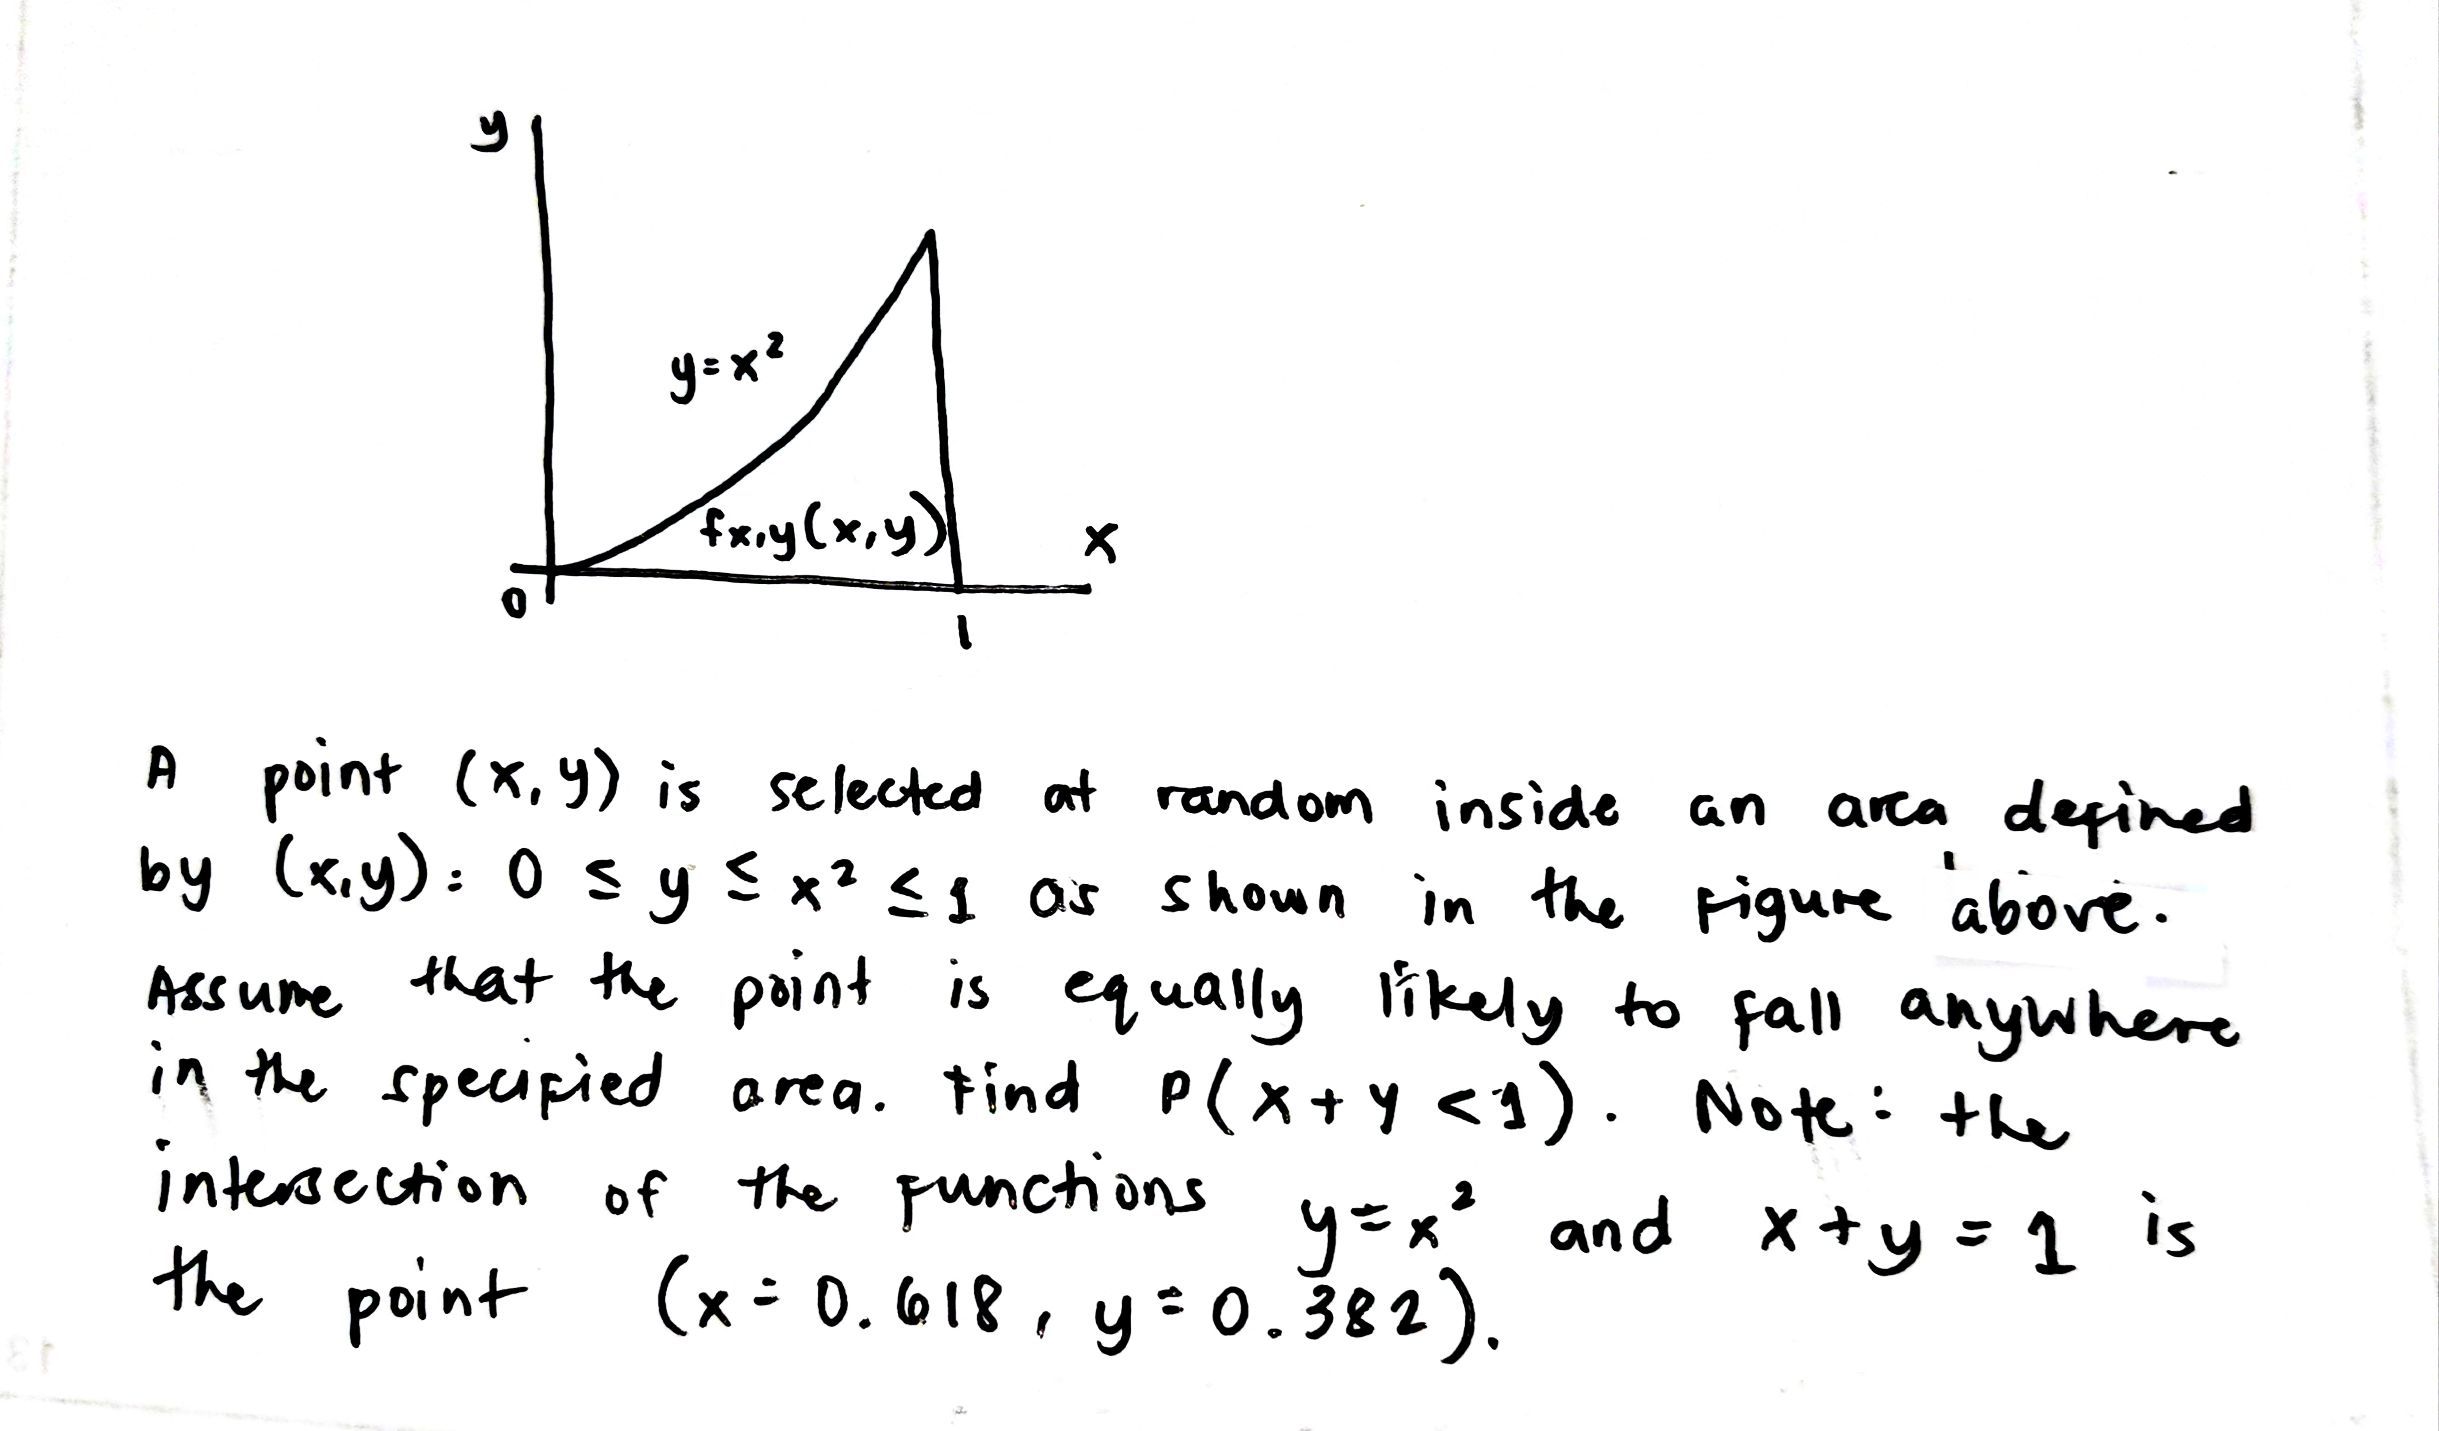 y
y=x²
fx,y(x,y)
x
0
1
A point (x,y) is selected at random inside an area defined
by (x,y): 0 ≤ y ≤ x² ≤ 1 as shown in the Figure above.
Assume that the point is equally likely to fall anywhere
in the specified area. Find P(x+y<1). Note: the
intersection of the functions y=x² and x+y=1 is
the point (x=0.618, y=0.382).